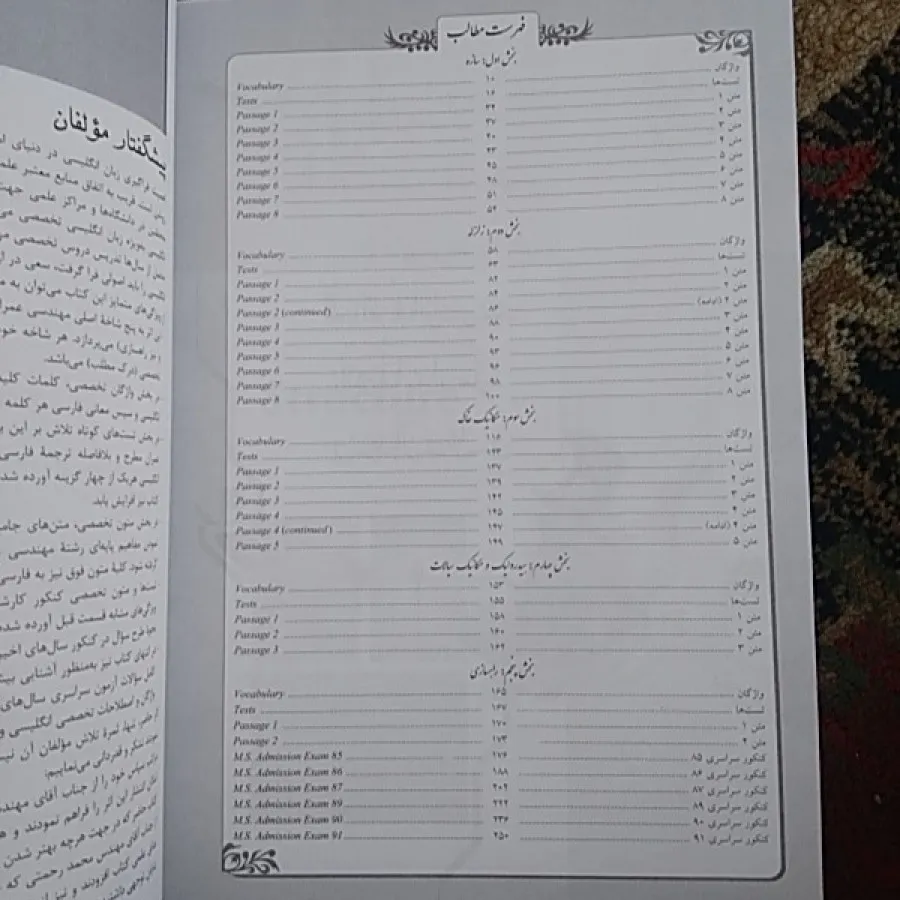 فهرست مطالب
بخش اول: سازه
Vocabulary ۱۰ واژگان
Tests ۱۶ تست‌ها
Passage 1 ۳۴ متن ۱
Passage 2 ۳۷ متن ۲
Passage 3 ۴۰ متن ۳
Passage 4 ۴۳ متن ۴
Passage 5 ۴۵ متن ۵
Passage 6 ۴۸ متن ۶
Passage 7 ۵۱ متن ۷
Passage 8 ۵۴ متن ۸
بخش دوم: زلزله
Vocabulary ۵۸ واژگان
Tests ۶۳ تست‌ها
Passage 1 ۸۲ متن ۱
Passage 2 ۸۴ متن ۲
Passage 2 (continued) ۸۶ متن ۲ (ادامه)
Passage 3 ۸۸ متن ۳
Passage 4 ۹۰ متن ۴
Passage 5 ۹۳ متن ۵
Passage 6 ۹۶ متن ۶
Passage 7 ۹۸ متن ۷
Passage 8 ۱۰۰ متن ۸
بخش سوم: مکانیک خاک
Vocabulary ۱۱۶ واژگان
Tests ۱۲۳ تست‌ها
Passage 1 ۱۳۷ متن ۱
Passage 2 ۱۳۹ متن ۲
Passage 3 ۱۴۲ متن ۳
Passage 4 ۱۴۵ متن ۴
Passage 4 (continued) ۱۴۷ متن ۴ (ادامه)
Passage 5 ۱۴۹ متن ۵
بخش چهارم: هیدرولیک و مکانیک سیالات
Vocabulary ۱۵۳ واژگان
Tests ۱۵۵ تست‌ها
Passage 1 ۱۵۸ متن ۱
Passage 2 ۱۶۰ متن ۲
Passage 3 ۱۶۲ متن ۳
بخش پنجم: راهسازی
Vocabulary ۱۶۵ واژگان
Tests ۱۶۷ تست‌ها
Passage 1 ۱۷۰ متن ۱
Passage 2 ۱۷۳ متن ۲
M.S. Admission Exam 85 ۱۷۶ کنکور سراسری ۸۵
M.S. Admission Exam 86 ۱۸۸ کنکور سراسری ۸۶
M.S. Admission Exam 87 ۲۰۲ کنکور سراسری ۸۷
M.S. Admission Exam 89 ۲۲۲ کنکور سراسری ۸۹
M.S. Admission Exam 90 ۲۳۶ کنکور سراسری ۹۰
M.S. Admission Exam 91 ۲۵۰ کنکور سراسری ۹۱
پیشگفتار مؤلفان
فراگیری زبان انگلیسی در دنیای
است قریب به اتفاق منابع معتبر
در دانشگاه‌ها و مراکز علمی
بویژه زبان انگلیسی تخصصی
از سال‌ها تدریس دروس تخصصی
را باید اصولی فرا گرفت، سعی در
متمایز این کتاب می‌توان به
به پنج شاخهٔ اصلی مهندسی
می‌پردازد. هر شاخه
(درک مطلب) می‌باشد.
بخش واژگان تخصصی، کلمات
و سپس معانی فارسی هر کلمه
بخش تست‌های کوتاه تلاش بر این
مطرح و بلافاصله ترجمهٔ فارسی
هریک از چهار گزینه آورده
کتاب نیز افزایش یابد.
بخش متون تخصصی، متن‌های
مفاهیم پایه‌ای رشتهٔ مهندسی
شود. کلیهٔ متون فوق نیز به فارسی
و متون تخصصی کنکور
مشابه قسمت قبل آورده
طرح سؤال در کنکور سال‌های
کتاب نیز به‌منظور آشنایی
سؤالات آزمون سراسری سال‌های
و اصطلاحات تخصصی انگلیسی
ثمرهٔ تلاش مؤلفان آن
تشکر و قدردانی می‌نماییم:
سپاس خود را از جناب آقای
این اثر را فراهم نمودند و
که در جهت هرچه بهتر شدن
آقای مهندس محمد رحمتی که
کتاب افزودند و